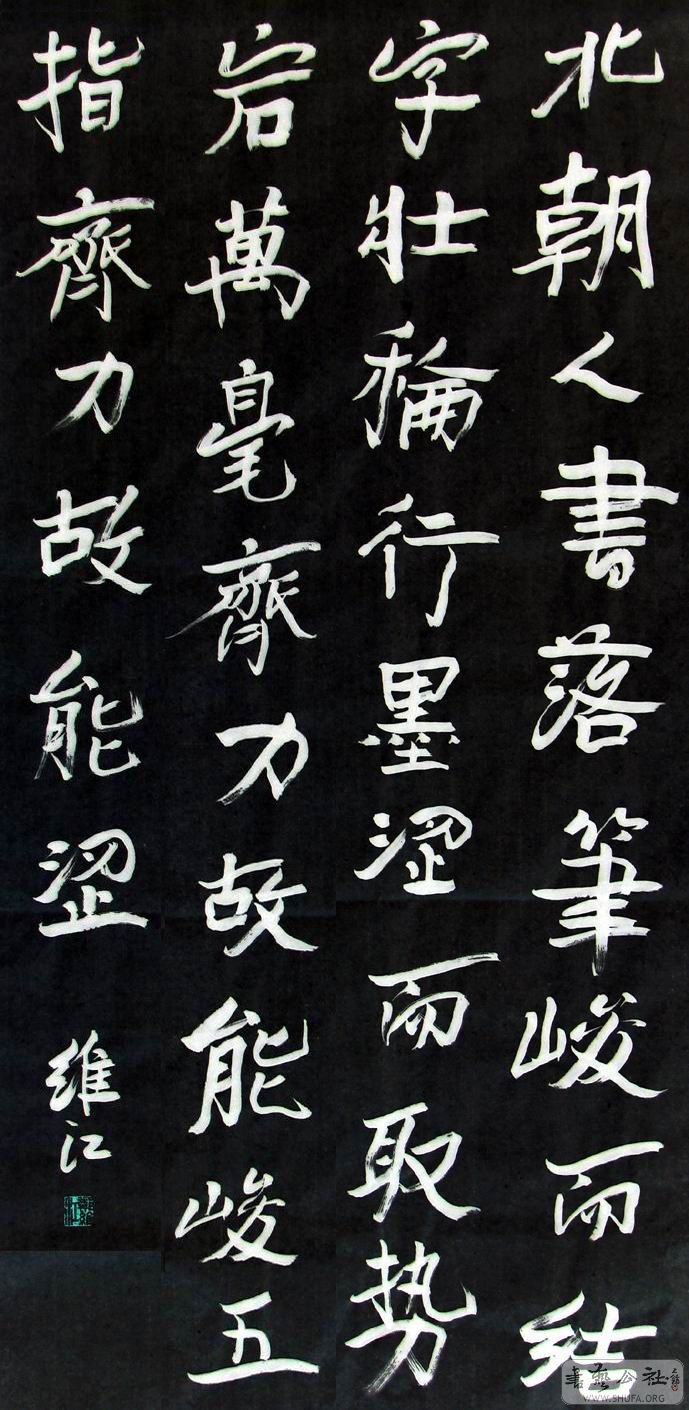 北朝人書落筆峻而结
字壮稐行墨涩而取势
宕萬毫齊力故能峻五
指齊力故能涩
维江
書藝公社
WWW.SHUFA.ORG